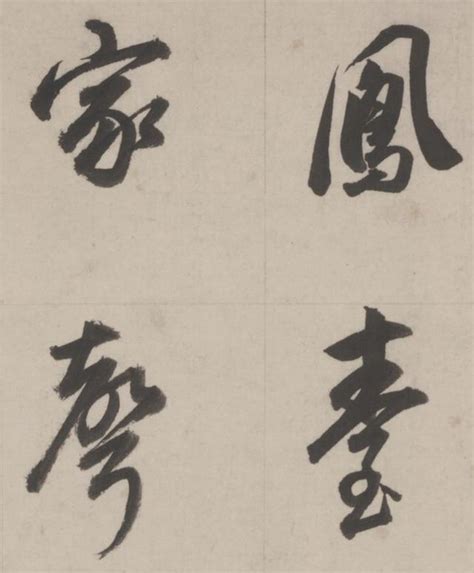 鳳臺
家聲